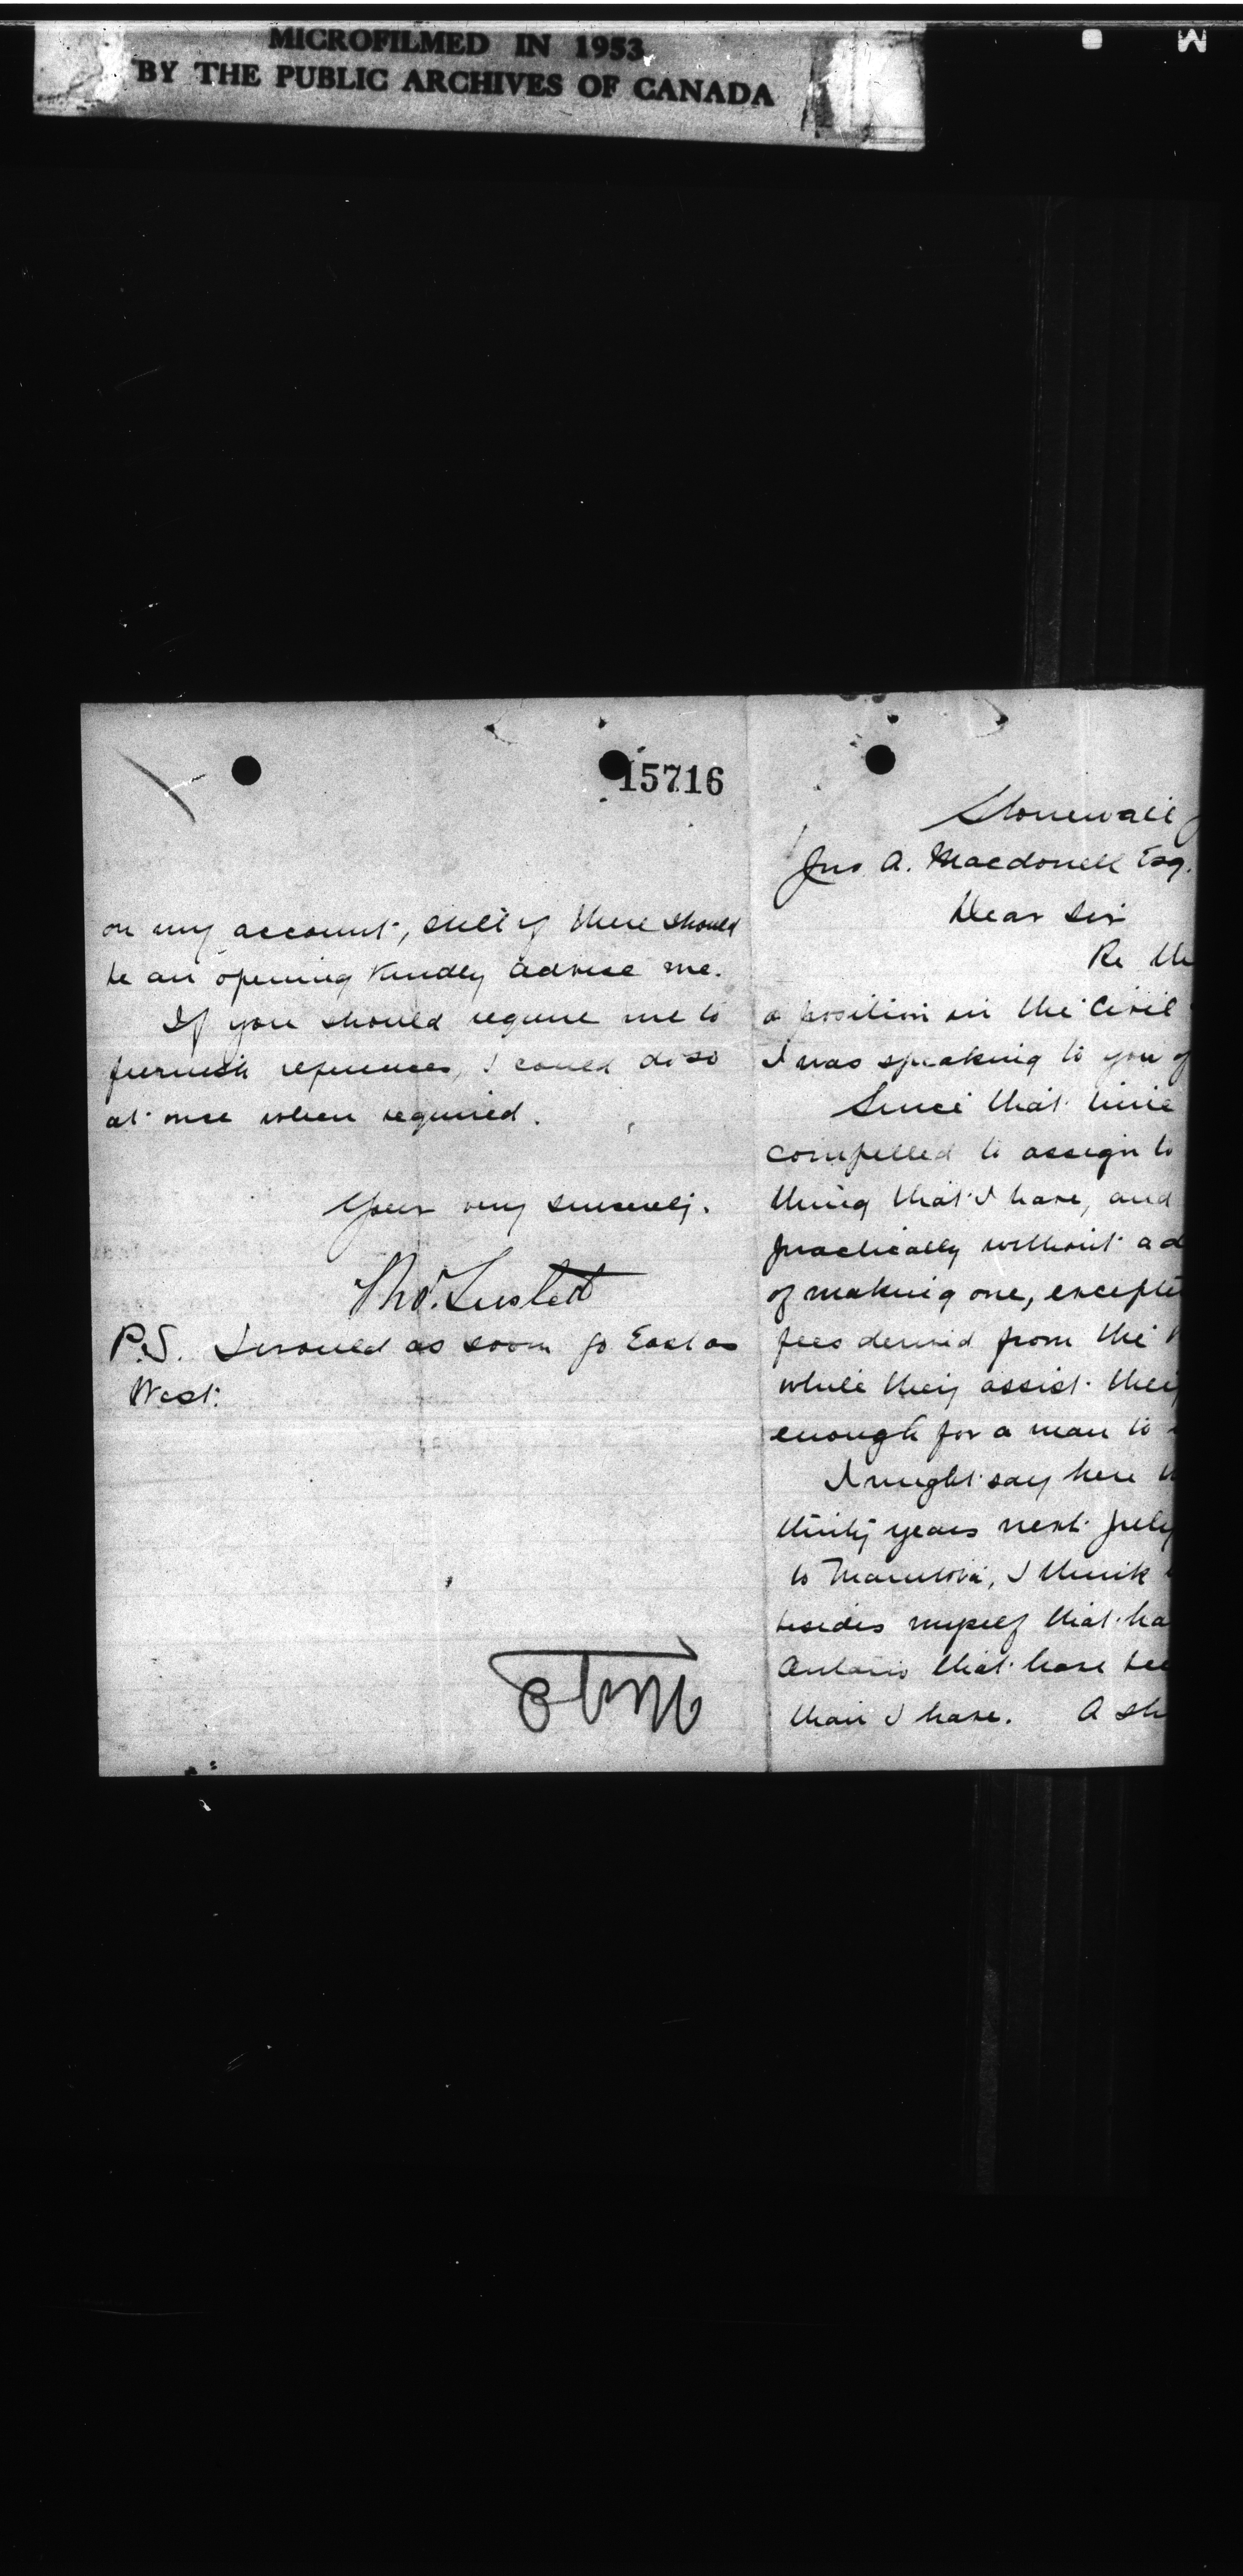 MICROFILMED IN 1953
BY THE PUBLIC ARCHIVES OF CANADA
15716
on my account, still if there should
be an opening kindly advise me.
If you should require me to
furnish references, I could do so
at once when required.
Yours very sincerely.
Tho.
P.S. I would as soon go East as
West.
Stonewall
Jno A. Macdonell Esq.
Dear Sir
Re th
a position in the Civil
I was speaking to you of
Since that time
compelled to assign to
thing that I have, and
practically without a d
of making one, except
fees derived from the
while they assist they
enough for a man to
I might say here th
thirty years next July
to Manitoba, I think
besides myself that ha
Ontario that have bee
than I have. A sh